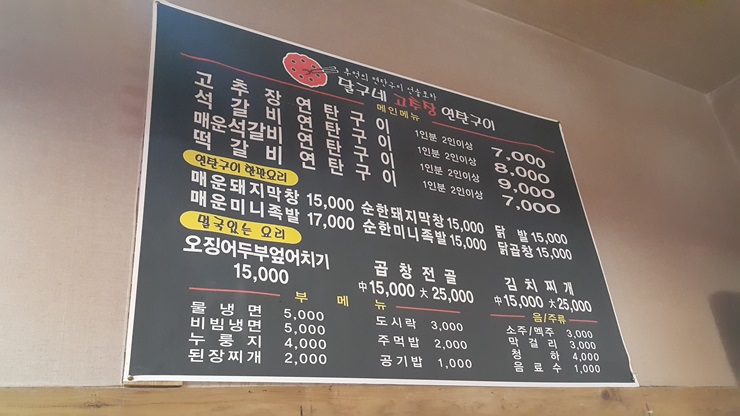 추억의 연탄구이 선술포차
달구네 고추장 연탄구이
메인메뉴
고추장연탄구이 1인분 2인이상 7,000
석갈비연탄구이 1인분 2인이상 8,000
매운석갈비연탄구이 1인분 2인이상 9,000
떡갈비연탄구이 1인분 2인이상 7,000
연탄구이 한판요리
매운돼지막창 15,000 순한돼지막창 15,000 닭발 15,000
매운미니족발 17,000 순한미니족발 15,000 닭곱창 15,000
멀국있는 요리
오징어두부엎어치기 15,000
곱창전골 中15,000 大25,000
김치찌개 中15,000 大25,000
부메뉴
물냉면 5,000
비빔냉면 5,000
누룽지 4,000
된장찌개 2,000
도시락 3,000
주먹밥 2,000
공기밥 1,000
음/주류
소주/맥주 3,000
막걸리 3,000
청하 4,000
음료수 1,000